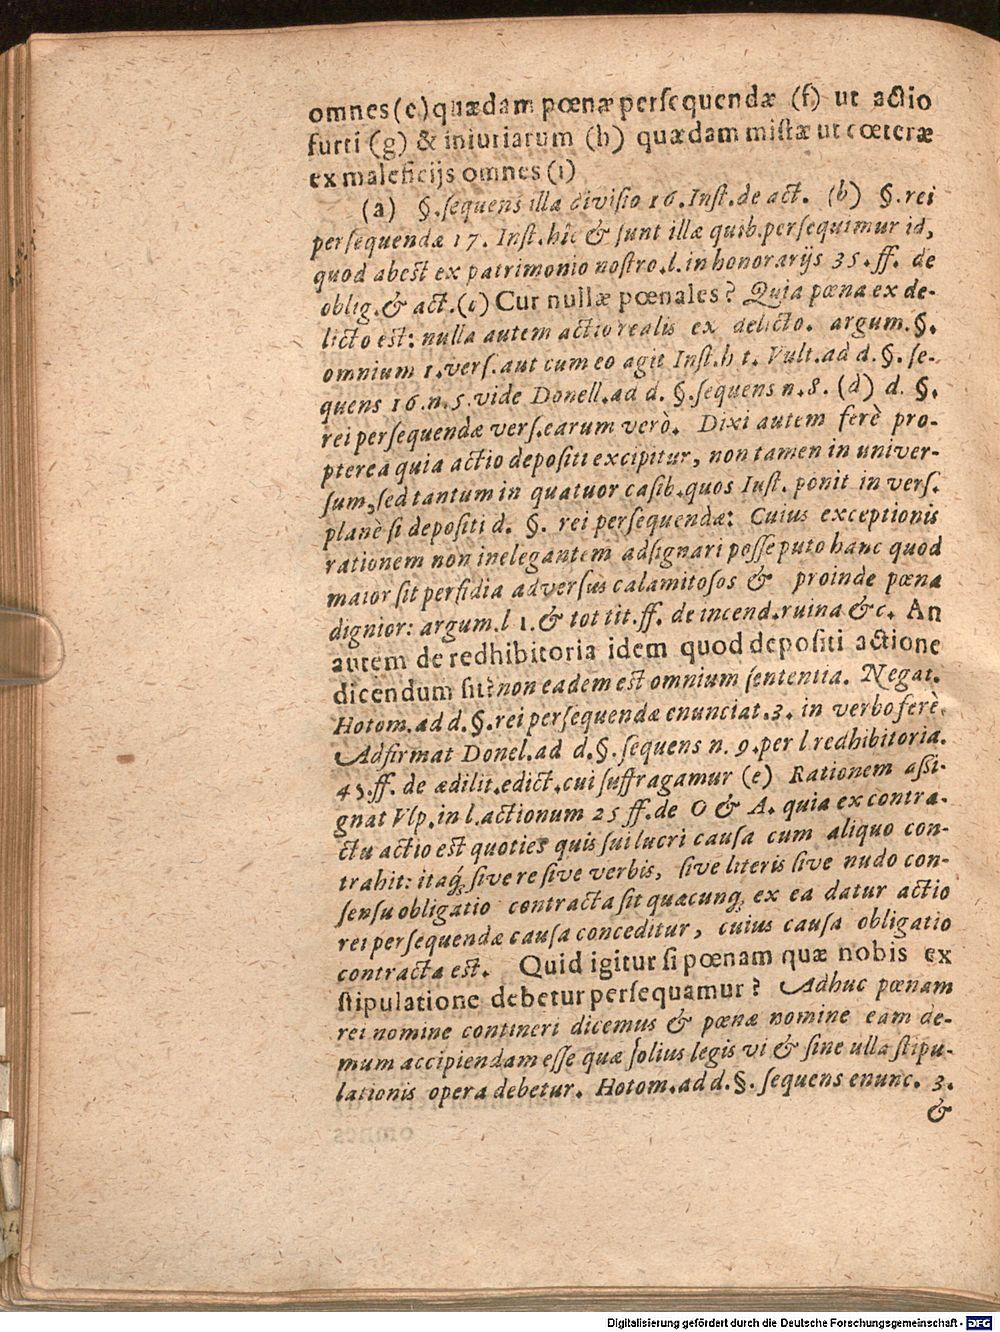 omnes (e) quædam pœnæ persequendæ (f) ut actio
furti (g) & iniuriarum (h) quædam mistæ ut cœteræ
ex maleficijs omnes (i)
(a) §. ſequens illa diviſio 16. Inſt. de act. (b) §. rei
perſequendæ 17. Inſt. hîc & ſunt illæ quib. perſequimur id,
quod abest ex patrimonio noſtro. l. in honorarijs 35. ff. de
oblig. & act. (c) Cur nullæ pœnales? Quia pœna ex de-
licto est: nulla autem actio realis ex delicto. argum. §.
omnium 1. verſ. aut cum eo agit Inſt. h t. Vult. ad d. §. ſe-
quens 16. n. 5. vide Donell. ad d. §. ſequens n. 8. (d) d. §.
rei perſequendæ verſ. earum verò. Dixi autem ferè pro-
pterea quia actio depoſiti excipitur, non tamen in univer-
ſum, ſed tantum in quatuor caſib. quos Iuſt. ponit in verſ.
planè ſi depoſiti d. §. rei perſequendæ: Cuius exceptionis
rationem non inelegantem adſignari poſſe puto hanc quod
maior ſit perfidia adverſus calamitoſos & proinde pœna
dignior: argum. l 1. & tot tit. ff. de incend. ruina &c. An
autem de redhibitoria idem quod depoſiti actione
dicendum ſit? non eadem est omnium ſententia. Negat.
Hotom. ad d. §. rei perſequendæ enunciat. 3. in verbo ferè.
Adfirmat Donel. ad d. §. ſequens n. 9. per l. redhibitoria.
45. ff. de ædilit. edict. cui ſuffragamur (e) Rationem aſſi-
gnat Vlp. in l. actionum 25 ff. de O & A. quia ex contra-
ctu actio est quoties quis ſui lucri cauſa cum aliquo con-
trahit: itaq́, ſive re ſive verbis, ſive literis ſive nudo con-
ſenſu obligatio contracta ſit quæcunq́, ex ea datur actio
rei perſequendæ cauſa conceditur, cuius cauſa obligatio
contracta est. Quid igitur ſi pœnam quæ nobis ex
ſtipulatione debetur perſequamur? Adhuc pœnam
rei nomine contineri dicemus & pœnæ nomine eam de-
mum accipiendam eſſe quæ ſolius legis vi & ſine ulla ſtipu-
lationis opera debetur. Hotom. ad d. §. ſequens enunc. 3.
&
Digitalisierung gefördert durch die Deutsche Forschungsgemeinschaft - DFG